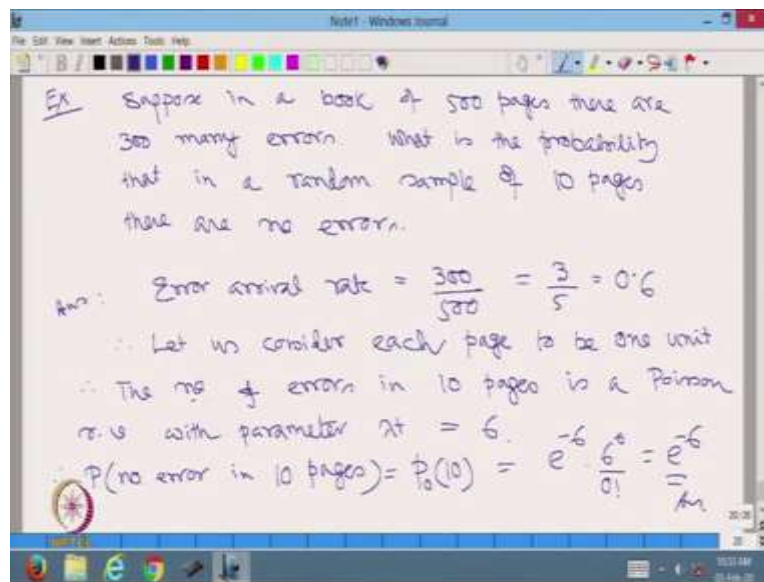 Note1 - Windows Journal
File Edit View Insert Actions Tools Help
Ex Suppose in a book of 500 pages there are
300 many errors. What is the probability
that in a random sample of 10 pages
there are no errors.
Ans: Error arrival rate = 300/500 = 3/5 = 0.6
∴ Let us consider each page to be one unit
∴ The no of errors in 10 pages is a Poisson
r.v with parameter λt = 6.
∴ P(no error in 10 pages) = P₀(10) = e⁻⁶ · 6⁰/0! = e⁻⁶
Ans
NPTEL